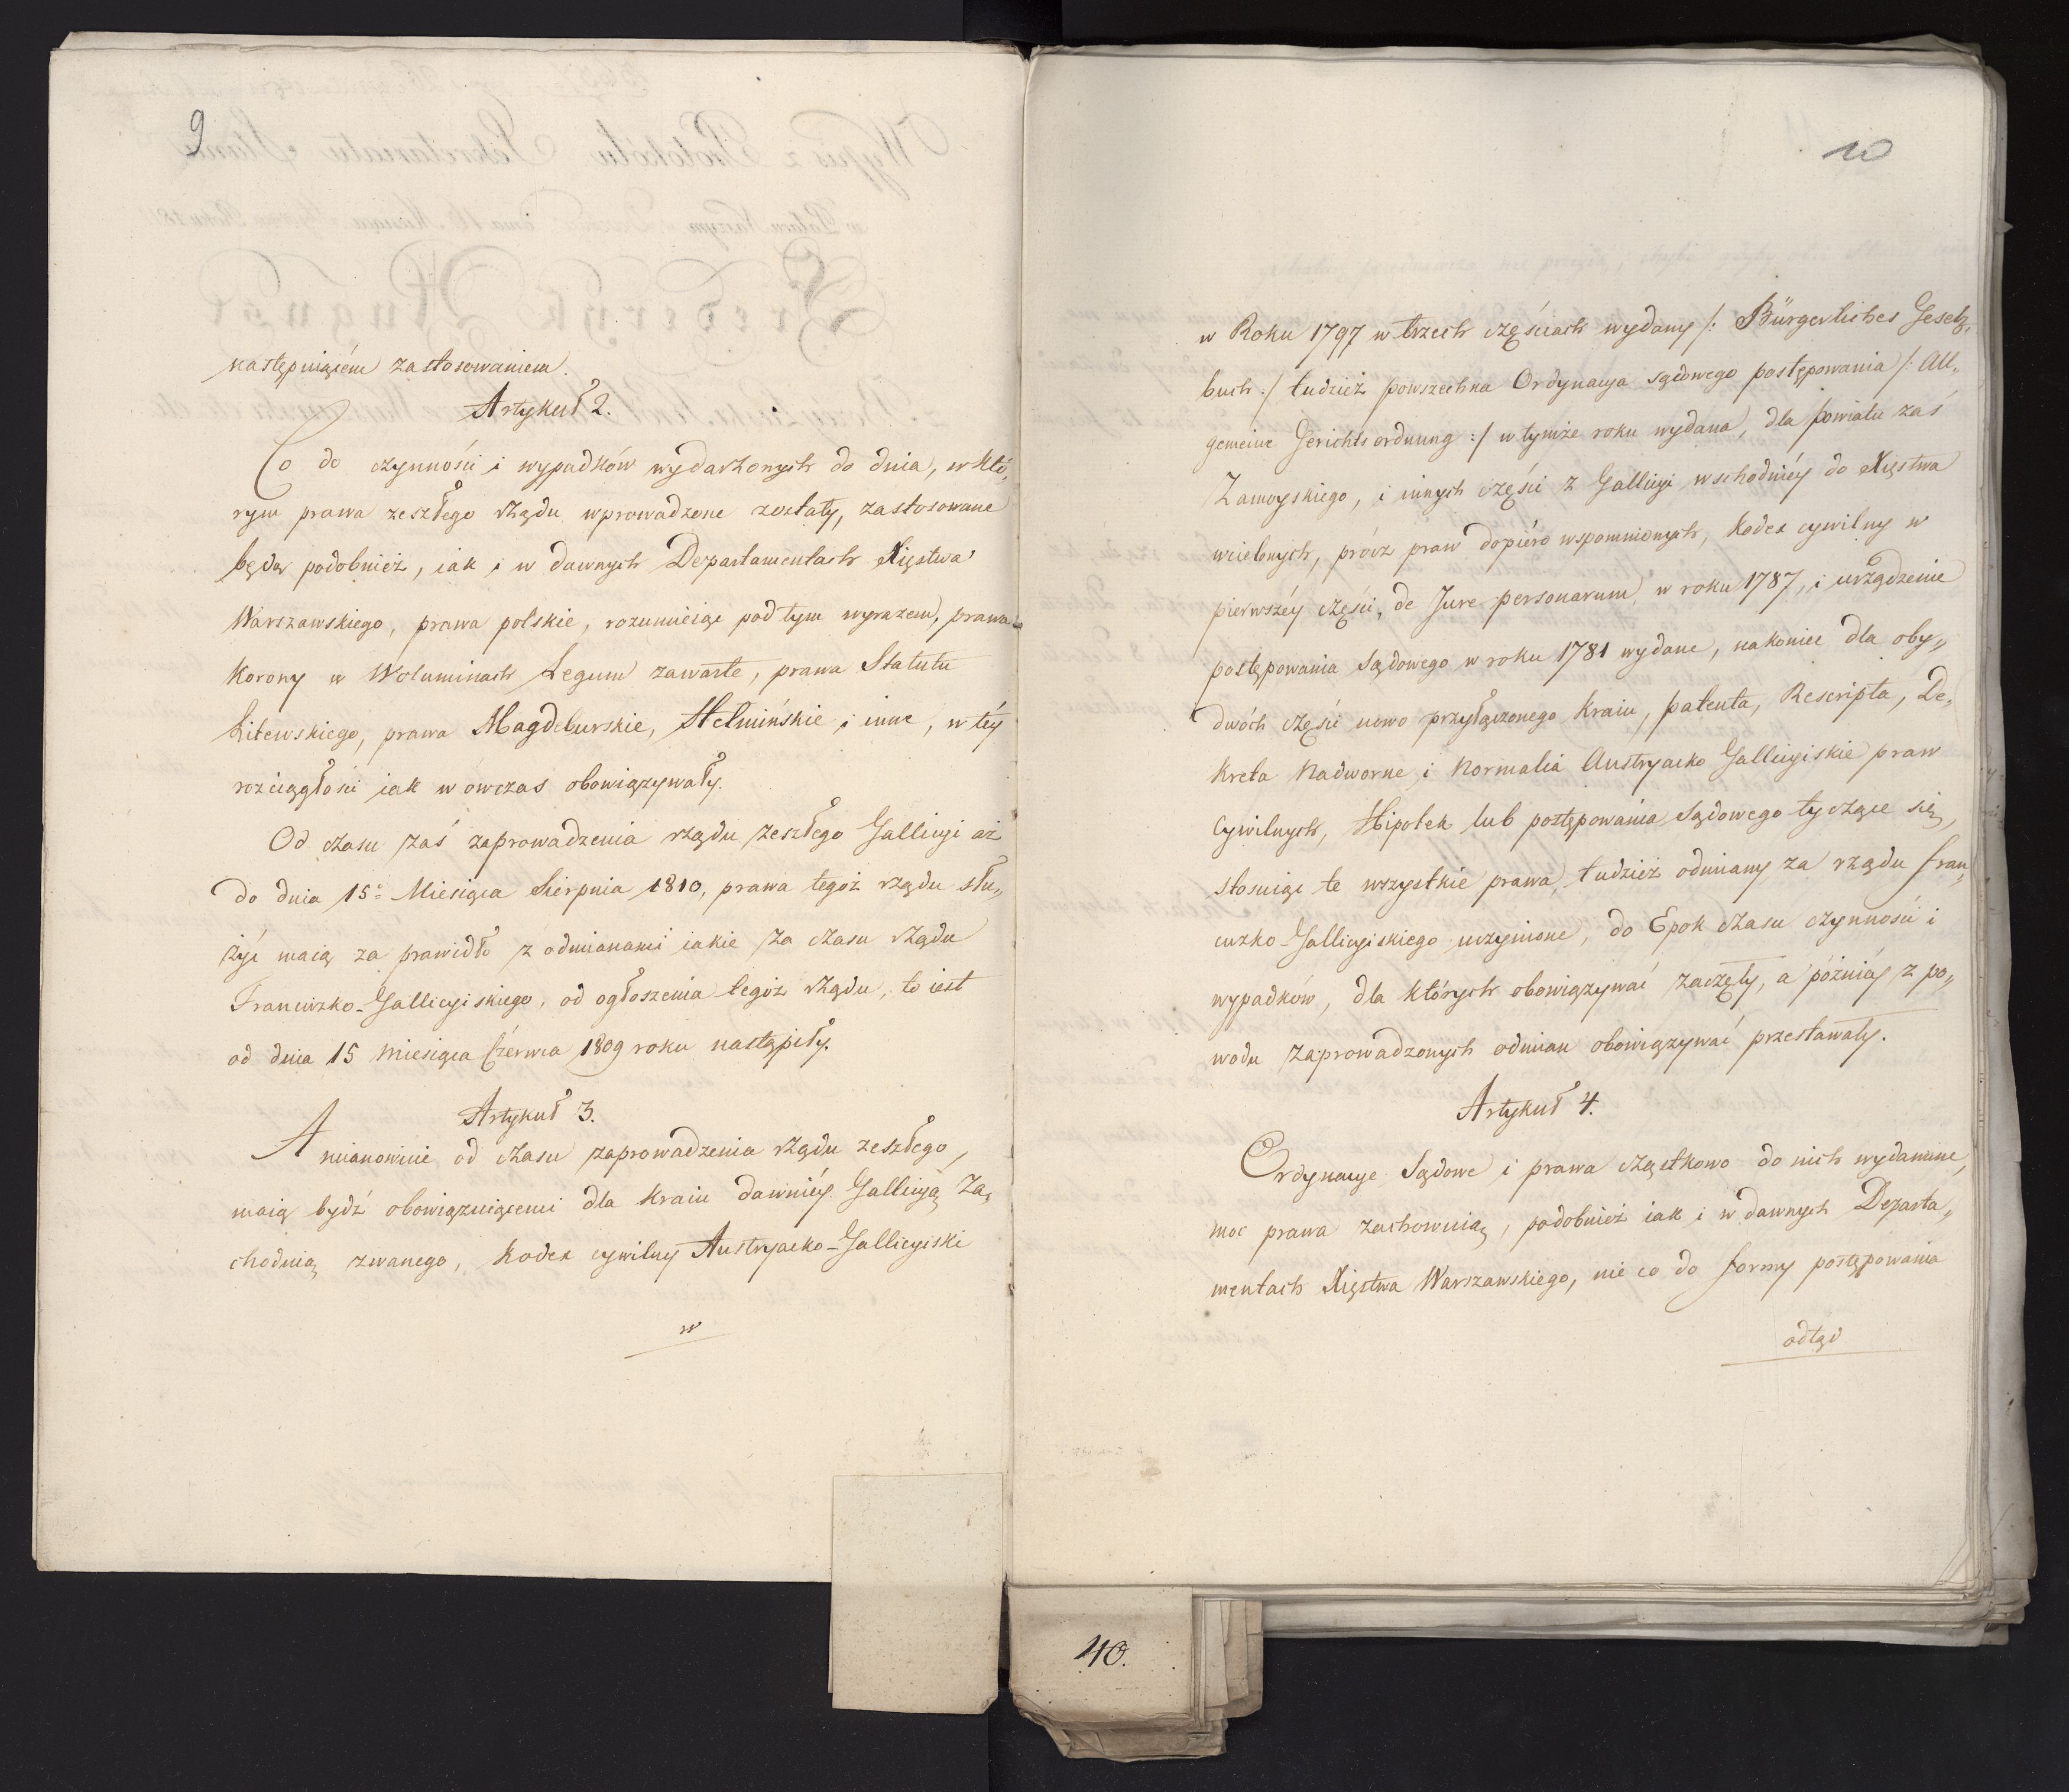 9
następuiącém zastosowaniem.
Artykuł 2.
Co do czynności i wypadków wydarzonych do dnia, w któ„
rym prawa zeszłego rządu wprowadzone zostały, zastosowane
będą podobnież, iak i w dawnych Departamentach Xięstwa
Warszawskiego, prawa polskie, rozumieiąc pod tym wyrazem, prawa
Korony w Woluminach Legum zawarte, prawa Statutu
Litewskiego, prawa Magdeburskie, Hełmińskie i inne, w téy
rozciągłości iak w ówczas obowiązywały.
Od czasu zaś zaprowadzenia rządu zeszłego Gallicyi aż
do dnia 15º Miesiąca Sierpnia 1810, prawa tegoż rządu słu„
żyć maią za prawidło z odmianami iakie za czasu rządu
Francuzko-Gallicyiskiego, od ogłoszenia tegoż rządu, to iest
od dnia 15 Miesiąca Czérwca 1809 roku nastąpiły.
Artykuł 3.
A mianowicie od czasu zaprowadzenia rządu zeszłego,
maią bydź obowiązuiącemi dla kraiu dawniéy Gallicyą Za„
chodnią zwanego, Kodex cywilny Austryacko-Gallicyiski
w
10
w Roku 1797 w trzech częściach wydany /: Bürgerliches Gesetz„
buch :/ tudzież powszechna Ordynacya sądowego postępowania /: All„
gemeine Gerichtsordnung :/ w tymże roku wydana, dla powiatu zaś
Zamoyskiego, i innych części z Gallicyi wschodniéy do Xięstwa
wcielonych, prócz praw dopiéro wspomnionych, Kodex cywilny w
pierwszéy części, de Jure personarum, w roku 1787, i urządzenie
postępowania sądowego w roku 1781 wydane, nakoniec dla oby„
dwóch części nowo przyłączonego kraiu, patenta, Rescripta, De„
kreta Nadworne i Normalia Austryacko Gallicyiskie praw
Cywilnych, Hipotek lub postępowania sądowego tyczące się,
stosuiąc te wszystkie prawa, tudzież odmiany za rządu fran„
cuzko-Gallicyiskiego uczynione, do Epok czasu czynności i
wypadków, dla których obowiązywać zaczęły, a późniéy z po„
wodu zaprowadzonych odmian obowiązywać przestawały.
Artykuł 4.
Ordynacye Sądowe i prawa cząstkowo do nich wydawane,
moc prawa zachowuią, podobnież iak i w dawnych Departa„
mentach Xięstwa Warszawskiego, nie co do formy postępowania
odtąd
40.